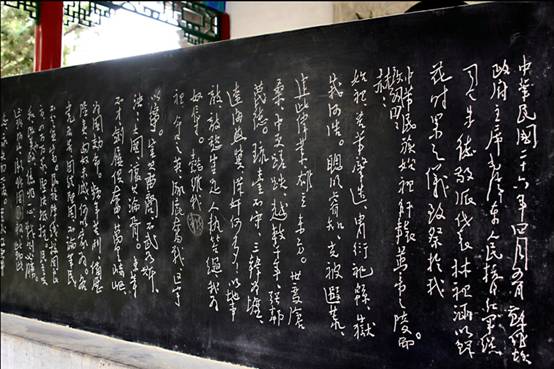 中華民國二十六年四月五日蘇維埃
政府主席毛澤東人民抗日紅軍總
司令朱德敬派代表林祖涵以鮮
花时果之儀致祭於我
中華民族始祖軒轅黃帝之陵而
致詞曰
赫赫
始祖吾華肇造胄衍祀綿岳
峨河浩。聰明睿知光被遐荒。
建此偉業雄立東方。世變滄
桑中更蹉跌越數千年强鄰
蔑德。琉台不守三韓为墟。
遼海燕冀漢奸何多以地事
敵敵欲豈足人执笞繩我为
奴辱。懿維我
祖命世之英涿鹿奮戰區宇
以寧。豈其苗裔不武如斯泱
泱大國讓其淪胥。東等
不才劍屨俱奮萬里崎岖
为國效命。频年苦斗備歷
險夷匈奴未滅何以家为